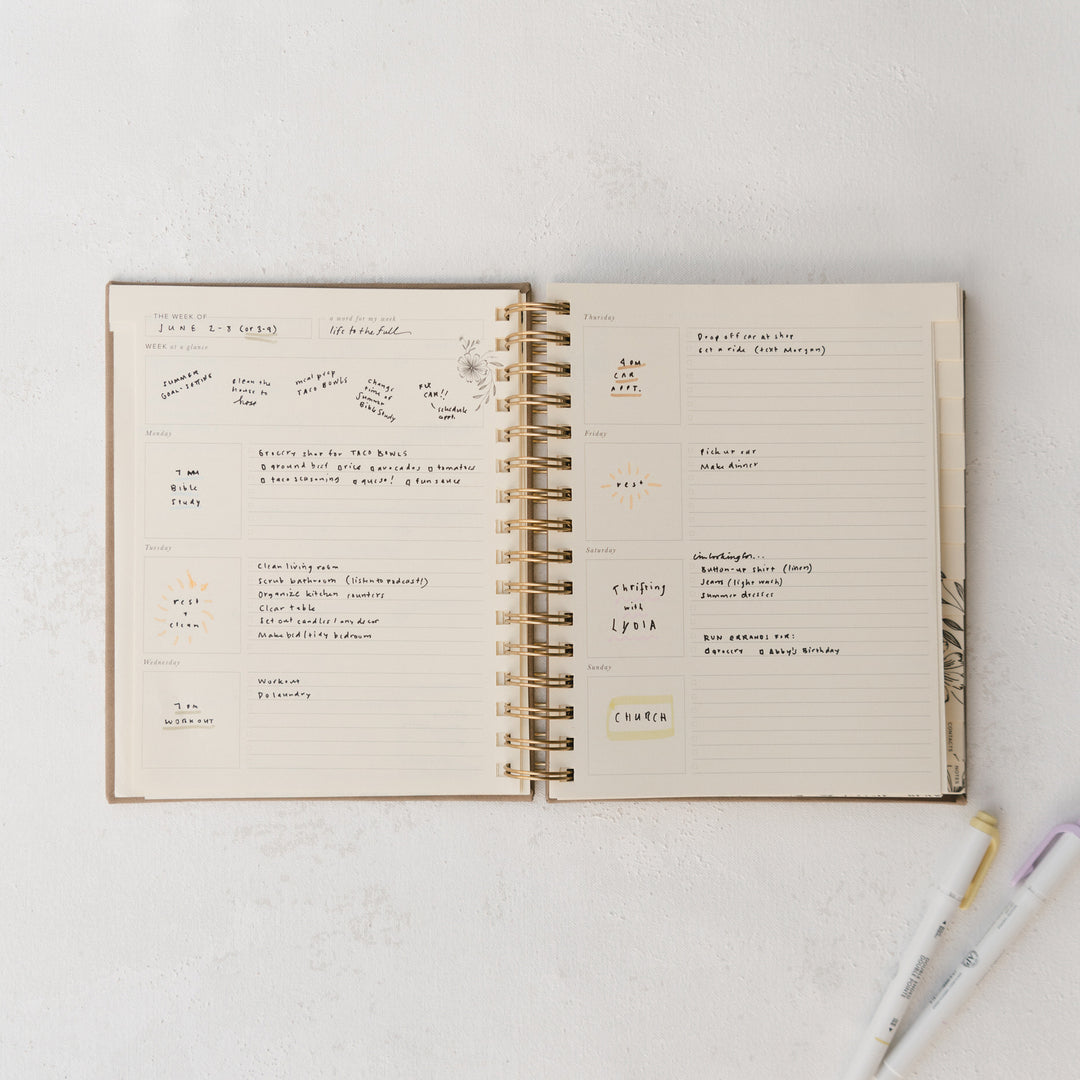 THE WEEK OF
JUNE 2-8 (or 3-9)
a word for my week
life to the full
WEEK at a glance
SUMMER
GOAL-SETTING
clean the
house to
host
meal prep
TACO BOWLS
change
time of
Summer
Bible Study
FIX
CAR!!
schedule
appt.
Monday
7 AM
Bible
Study
Grocery shop for TACO BOWLS
ground beef rice avocados tomatoes
taco seasoning queso! fun sauce
Tuesday
rest
+
clean
Clean living room
Scrub bathroom (listen to podcast!)
Organize kitchen counters
Clear table
Set out candles / any decor
Make bed / tidy bedroom
Wednesday
7 am
WORKOUT
Workout
Do laundry
Thursday
CAR
APPT.
Drop off car at shop
Get a ride (text Morgan)
Friday
rest
Pick up car
Make dinner
Saturday
Thrifting
with
LYDIA
i'm looking for...
Button-up shirt (linen)
Jeans (light wash)
Summer dresses
RUN ERRANDS FOR:
grocery Abby's Birthday
Sunday
CHURCH
CONTACTS
NOTES